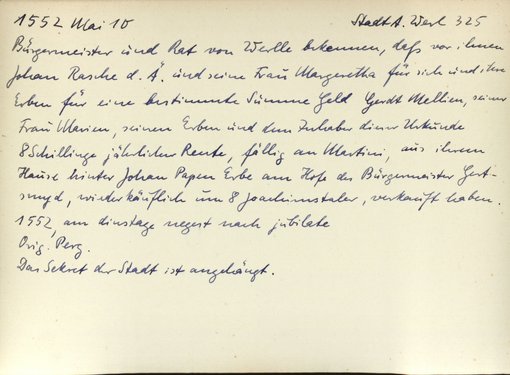 1552 Mai 10 Stadt A. Werl 325
Bürgermeister und Rat von Werlle bekennen, daß vor ihnen
Johan Rasche d. Ä. und seine Frau Margaretha für sich und ihre
Erben für eine bestimmte Summe Geld Gerdt Mellien, seiner
Frau Marien, seinen Erben und dem Inhaber dieser Urkunde
8 Schillinge jährlicher Rente, fällig an Martini, aus ihrem
Hause hinter Johan Papen Erbe am Hofe des Bürgermeister Gert-
, wiederkäuflich um 8 Joachimstaler, verkauft haben.
1552, am dinstage negest nach jubilate
Orig. Perg.
Das Sekret der Stadt ist angehängt.